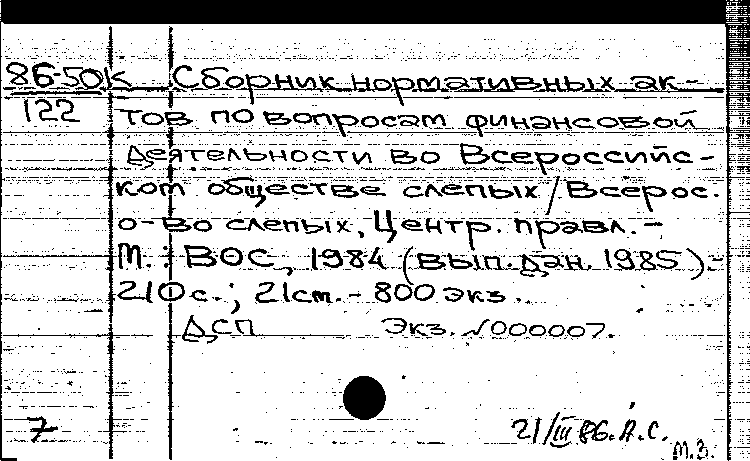 86-50к Сборник нормативных ак-
122 тов по вопросам финансовой
деятельности во Всероссийс-
ком обществе слепых/Всерос.
о-во слепых, Центр. правл.-
М.: ВОС, 1984 (вып.дан. 1985).-
210с.; 21см.- 800 экз.
ДСП Экз. №000007.
7 21/III 86. А.С.
М.З.